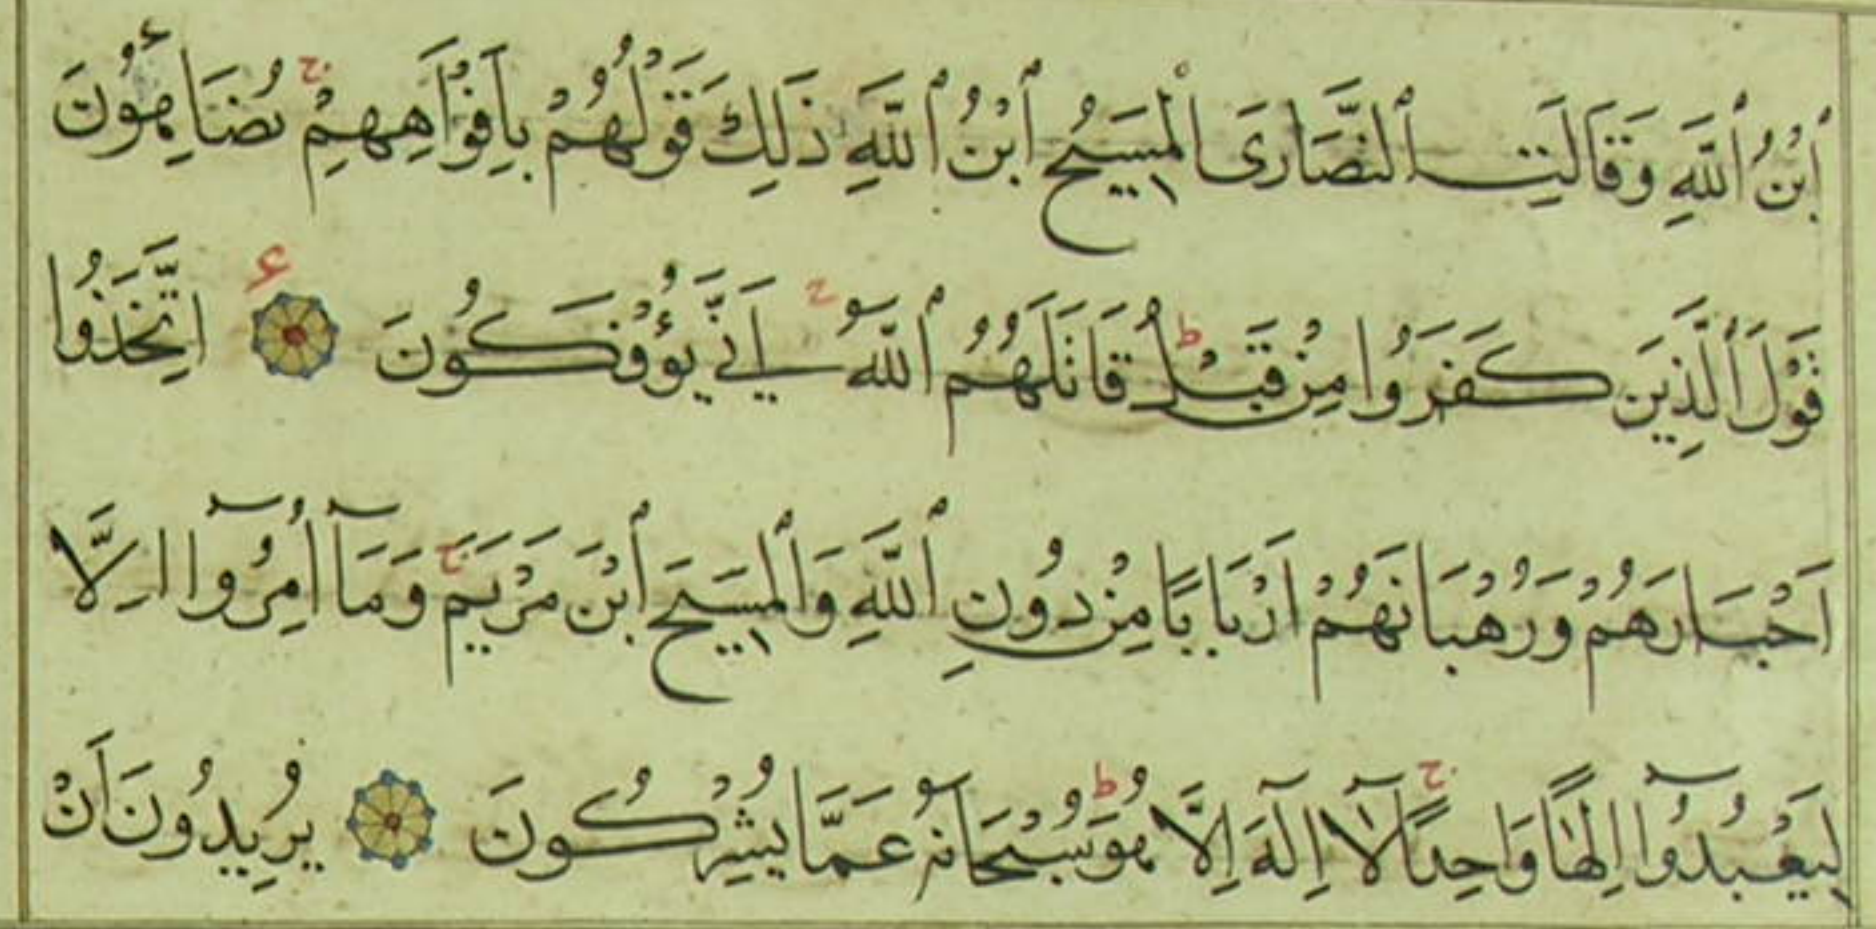 ٱبْنُ ٱللَّهِ وَقَالَتِ ٱلنَّصَارَى ٱلْمَسِيحُ ٱبْنُ ٱللَّهِ ذَلِكَ قَوْلُهُمْ بِأَفْوَاهِهِمْ ۚ يُضَاهِئُونَ
قَوْلَ ٱلَّذِينَ كَفَرُوا مِنْ قَبْلُ ؕ قَاتَلَهُمُ ٱللَّهُ أَنَّى يُؤْفَكُونَ ۝ اتَّخَذُوا
أَحْبَارَهُمْ وَرُهْبَانَهُمْ أَرْبَابًا مِنْ دُونِ ٱللَّهِ وَٱلْمَسِيحَ ٱبْنَ مَرْيَمَ ۚ وَمَآ أُمِرُوٓا اِلَّا
لِيَعْبُدُوٓا إِلٰهًا وَاحِدًا ۚ لَآ إِلَهَ إِلَّا هُوَ ؕ سُبْحَانَهُ عَمَّا يُشْرِكُونَ ۝ يُرِيدُونَ أَنْ